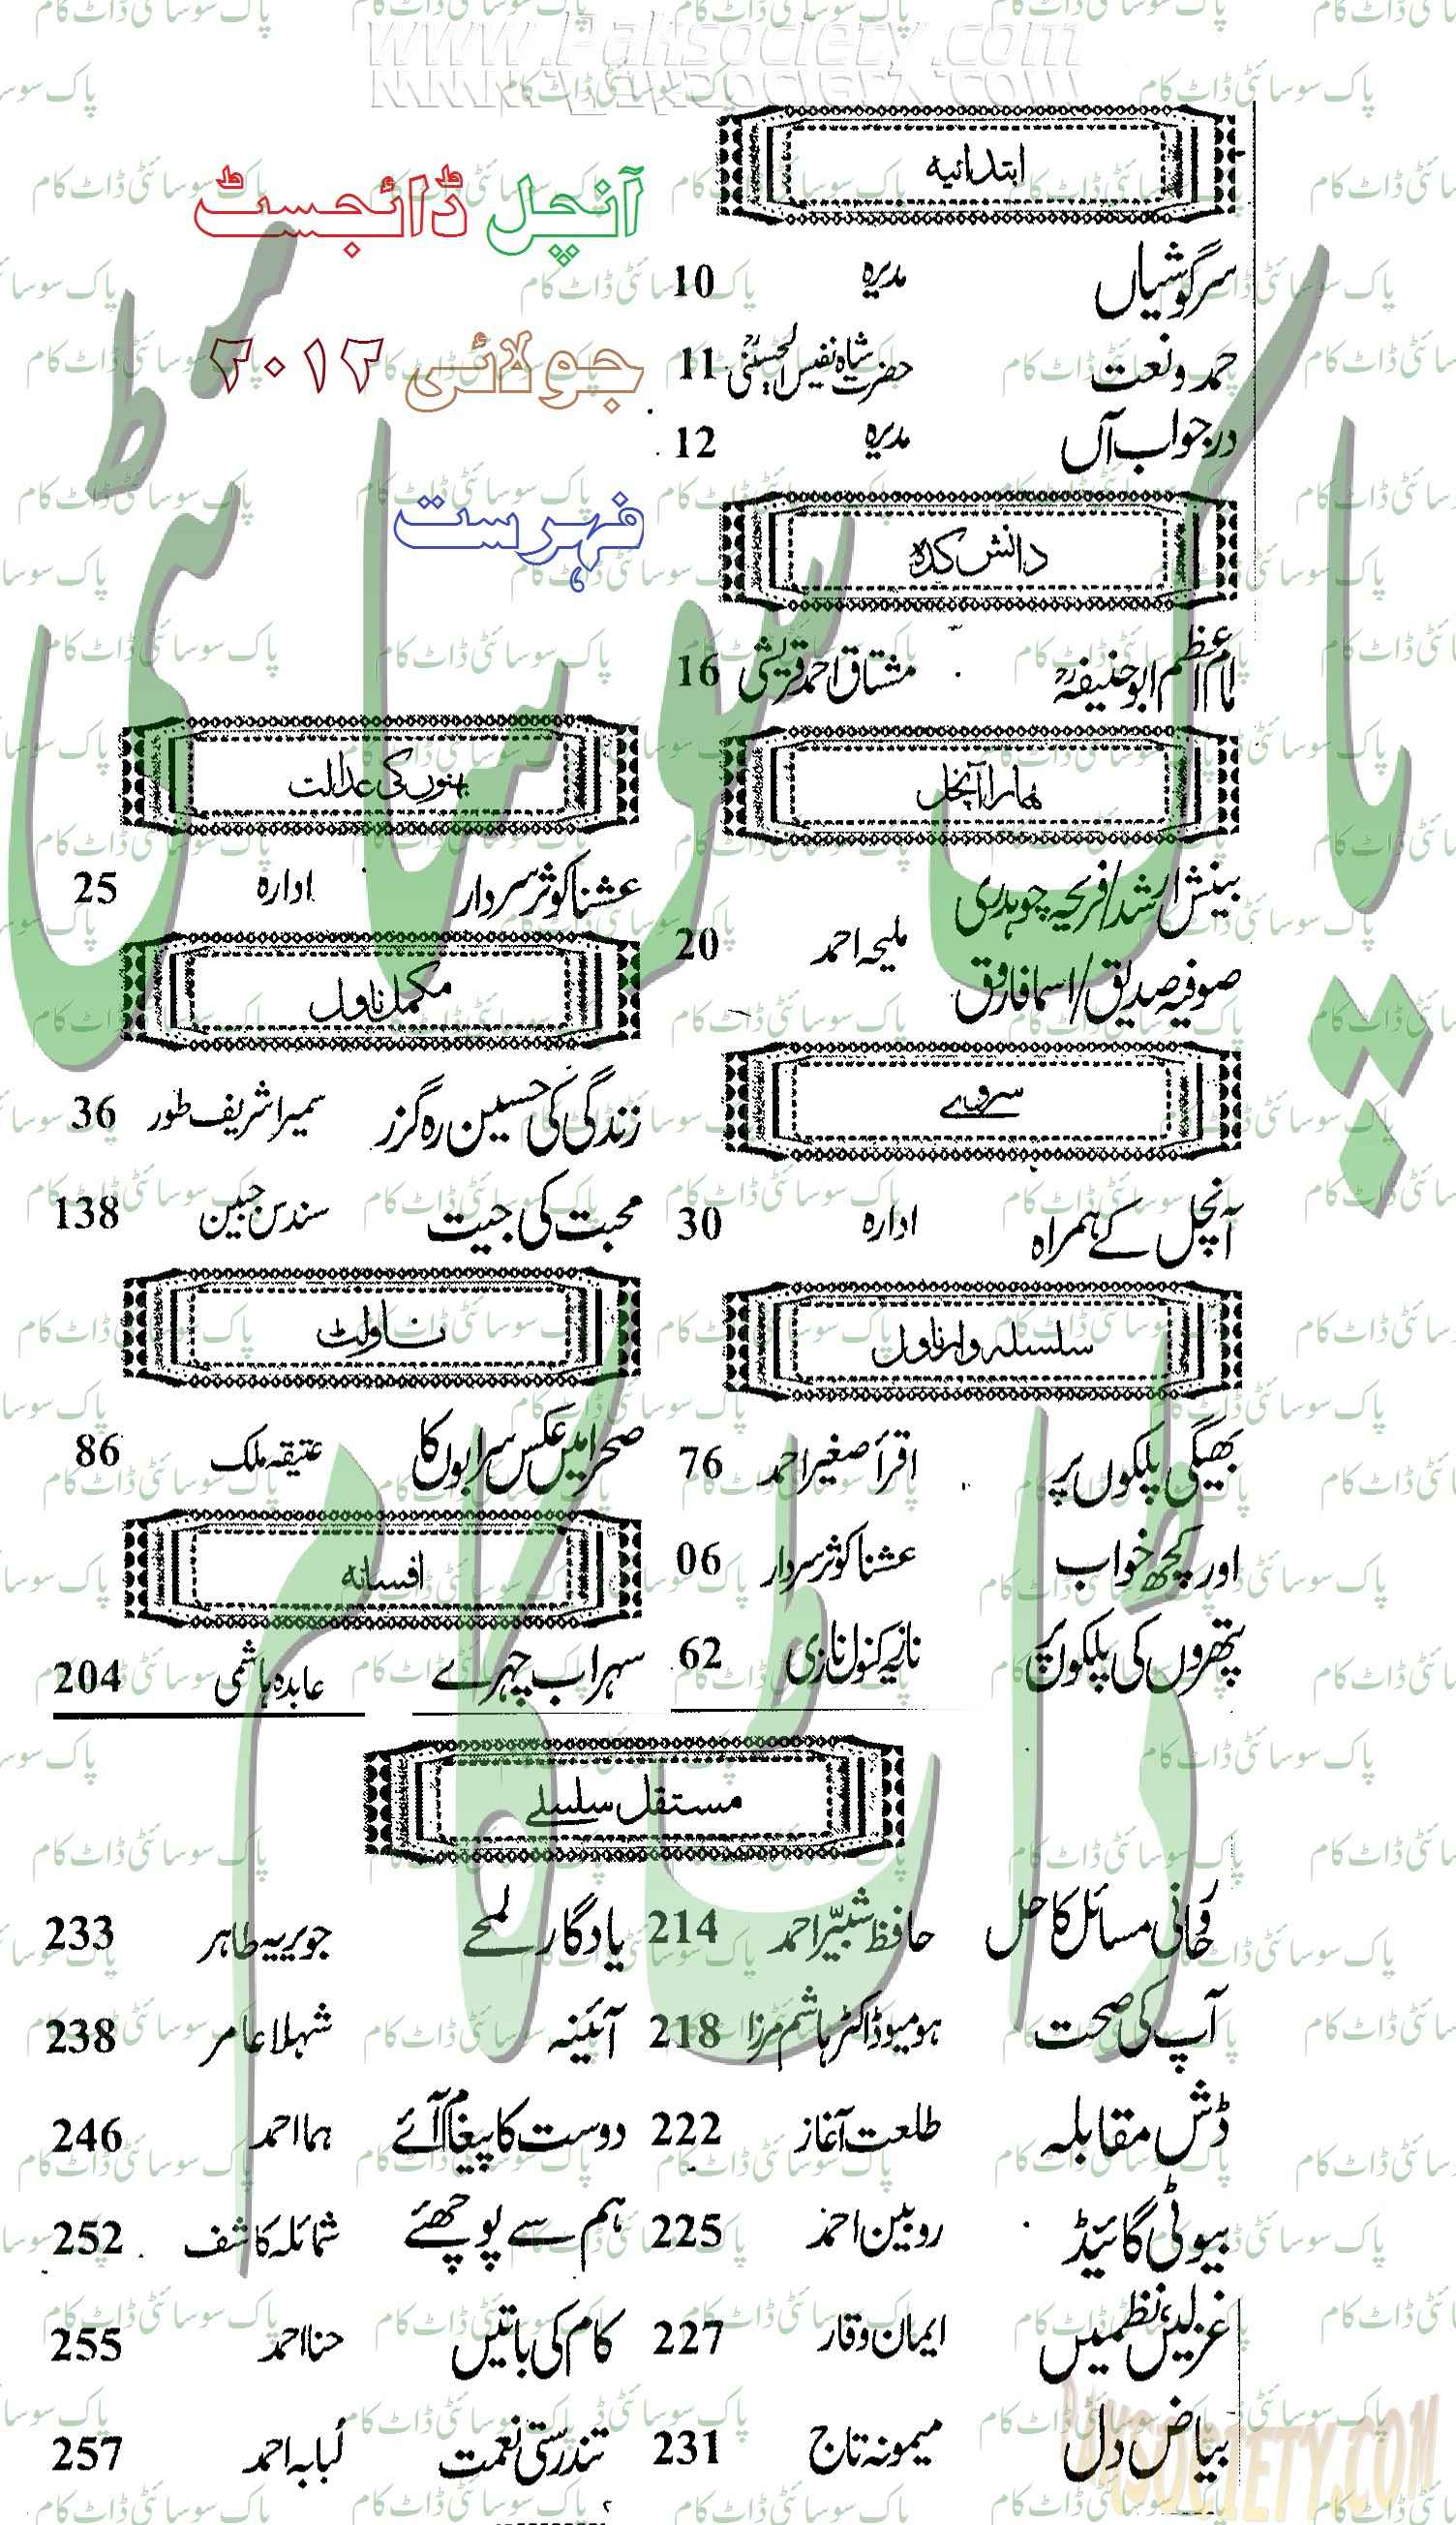 www.Paksociety.com
آنچل ڈائجسٹ
جولائی ۲۰۱۲
فہرست
ابتدائیہ
سرگوشیاں مدیرہ 10
حمد و نعت حضرت شاہ نفیس الحسینیؒ 11
درجواب آں مدیرہ 12
دانش کدہ
امام اعظم ابوحنیفہؒ مشتاق احمد قریشی 16
ہمارا آنچل
بینش ارشد/فریحہ چوہدری
ملیحہ احمد 20
صوفیہ صدیق/اسما فاروق
سروے
آنچل کے ہمراہ ادارہ 30
سلسلہ وار ناول
بھیگی پلکوں پر اقرأ صغیر احمد 76
اور کچھ خواب عشنا کوثر سردار 06
پتھروں کی پلکوں پر نازیہ کنول نازی 62
بہنوں کی عدالت
عشنا کوثر سردار ادارہ 25
مکمل ناول
زندگی کی حسین رہ گزر سمیرا شریف طور 36
محبت کی جیت سندس جبین 138
ناولٹ
صحرا میں عکس سرابوں کا عتیقہ ملک 86
افسانہ
سہراب چہرے عابدہ ہاشمی 204
مستقل سلسلے
روحانی مسائل کا حل حافظ شبیر احمد 214
آپ کی صحت ہومیو ڈاکٹر ہاشم مرزا 218
ڈش مقابلہ طلعت آغاز 222
بیوٹی گائیڈ روبین احمد 225
غزلیں نظمیں ایمان وقار 227
بیاض دل میمونہ تاج 231
یادگار لمحے جویریہ طاہر 233
آئینہ شہلا عامر 238
دوست کا پیغام آئے ہما احمد 246
ہم سے پوچھئے شمائلہ کاشف 252
کام کی باتیں حنا احمد 255
تندرستی نعمت لُبابہ احمد 257
پاک سوسائٹی ڈاٹ کام
PAKSOCIETY.COM